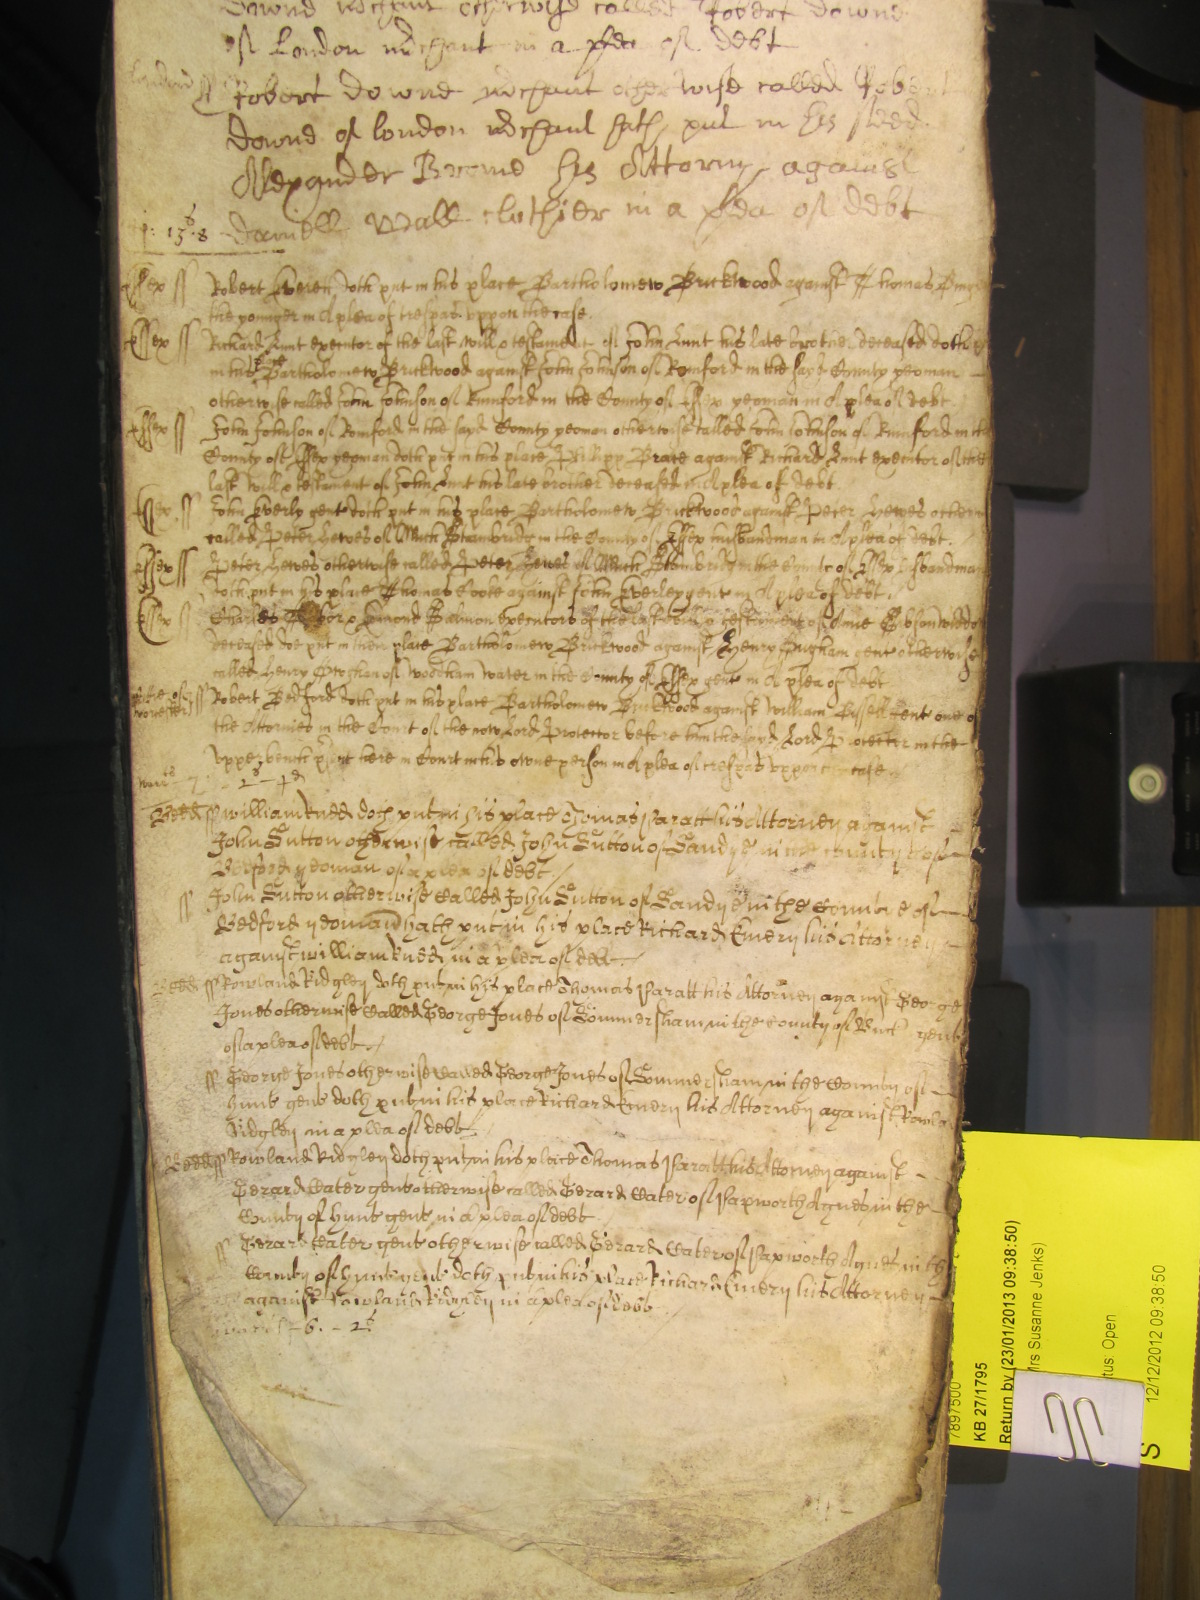 Downe mchant otherwise called Robert Downe
of London mchant in a plea of debt
London ss Robert Downe mchant otherwise called Robert
Downe of london mchant hath put in his sted
Alexander Browne his Attorny against
Daniell Wall clothier in a plea of debt
15 8
Essex ss Robert doth put in his place Bartholomew Brickwood against Thomas
the younger in A plea of trespas uppon the case.
Essex ss Richard Lunt executor of the last will & testament of John Lunt his late brother deceased doth put
in his place Bartholomew Brickwood against John Johnson of Romford in the sayd County yeoman
otherwise called John Johnson of Rumford in the County of Essex yeoman in A plea of debt.
Essex ss John Johnson of Romford in the sayd County yeoman otherwise called John Johnson of Rumford in the
County of Essex yeoman doth put in his place Philipp Brace against Richard Lunt executor of the
last will & testament of John Lunt his late brother deceased in A plea of debt.
Essex ss John Everly gent doth put in his place Bartholomew Brickwood against Peter Hewes otherwise
called Peter Hewes of Much Stambridg in the County of Essex husbandman in A plea of debt.
Essex ss Peter Hewes otherwise called Peter Hewes of Much Stambridg in the County of Essex husbandman
doth put in his place Thomas Cooke against John Everley gent in A plea of debt.
Essex ss Charles & Edmond Salmon executors of the last will & testament of Anne Gibson widdow
deceased doe put in their place Bartholomew Brickwood against Henry Bugham gent otherwise
called Henry of Woodham Water in the County of Essex gent in A plea of debt
ss Robert Bedford doth put in his place Bartholomew Brickwood against William Bissell Gent one of
the Attornies in the Court of the now Lord Protector before him the sayd Lord Protector in the
upper bench psent here in Court in his owne person in A plea of trespas uppon the case.
2s 4d
Bedd ss William Kned doth put in his place Thomas Paratt his Attorney against
John Sutton otherwise called John Sutton of Sandye in the County of
Bedford yeoman of a plea of debt
ss John Sutton otherwise called John Sutton of Sandye in the County of
Bedford yeoman hath put in his place Richard Emery his Attorney
against William Kned in a plea of debt
Bedd ss Rowland Ridgley doth put in his place Thomas Paratt his Attorney against George
Jones otherwise called George Jones of Sommersham in the County of gent
of a plea of debt
ss George Jones otherwise called George Jones of Sommersham in the County of
hunt gent doth put in his place Richard Emery his Attorney against Rowland
Ridgley in a plea of debt
Bedd ss Rowland Ridgley doth put in his place Thomas Paratt his Attorney against
Gerard Cater gent otherwise called Gerard Cater of Papworth Agnes in the
County of hunt gent in a plea of debt
ss Gerard Cater gent otherwise called Gerard Cater of Papworth Agnes in the
County of hunt gent doth put in his place Richard Emery his Attorney
against Rowland Ridgley in a plea of debt
6 - 2s
7897500
KB 27/1795
Return by (23/01/2013 09:38:50)
Mrs Susanne Jenks)
tus: Open
12/12/2012 09:38:50
S